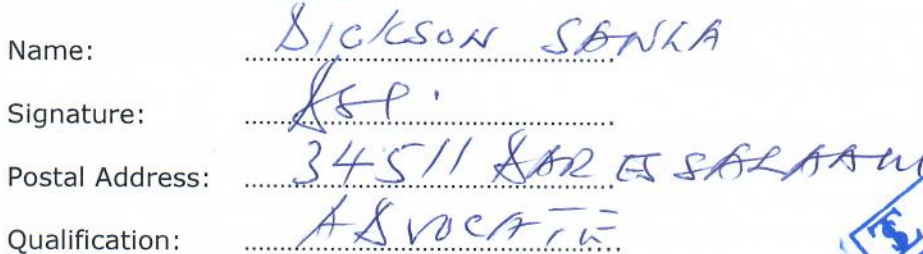 Name: DICKSON SANKA
Signature:
Postal Address: 34511 DAR ES SALAAM
Qualification: ADVOCATE